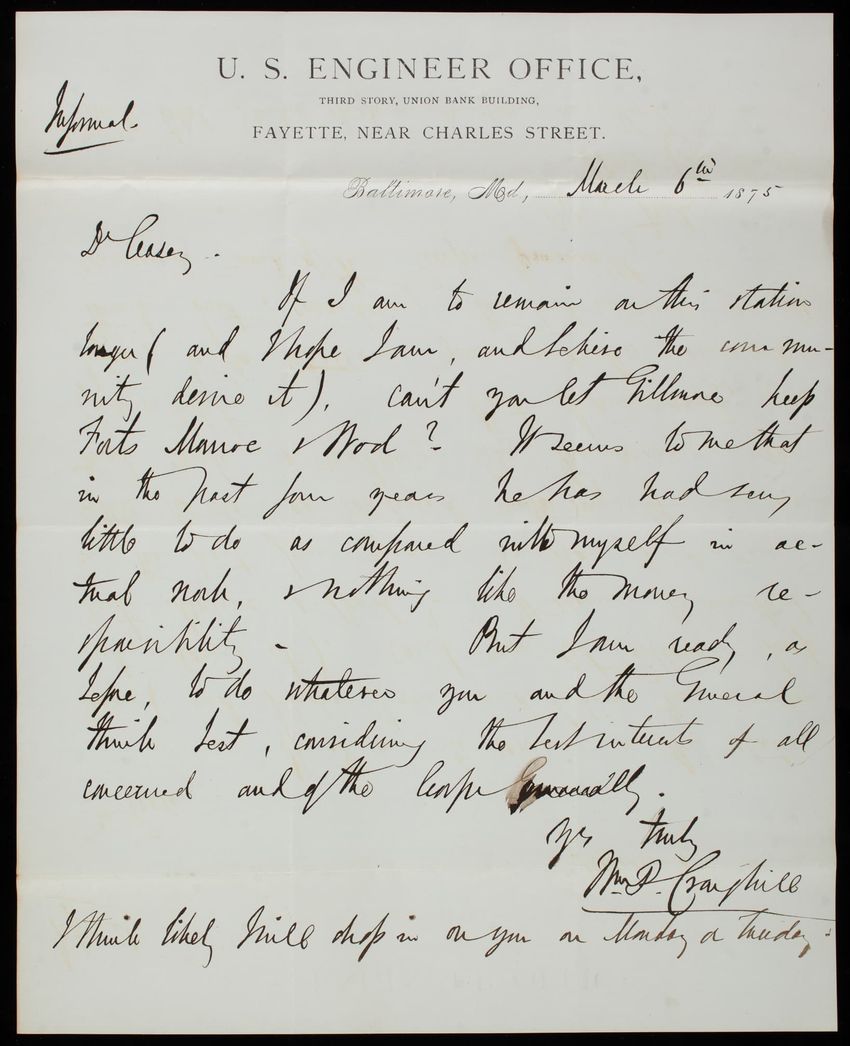 U. S. ENGINEER OFFICE,
THIRD STORY, UNION BANK BUILDING,
Informal
FAYETTE, NEAR CHARLES STREET.
Baltimore, Md., March 6th 1875
Dr Casey.
If I am to remain on this station
longer (and I hope I am, and believe the commu-
nity desire it), can't you let Gillmore keep
Forts Monroe & Wool? It seems to me that
in the past four years he has had very
little to do as compared with myself in ac-
tual work, & nothing like the money re-
sponsibility - But I am ready, as
before, to do whatever you and the General
think best, considering the best interests of all
concerned and of the Corps generally.
Yrs truly
Wm P. Craighill
I think likely I will drop in on you on Monday or Tuesday.